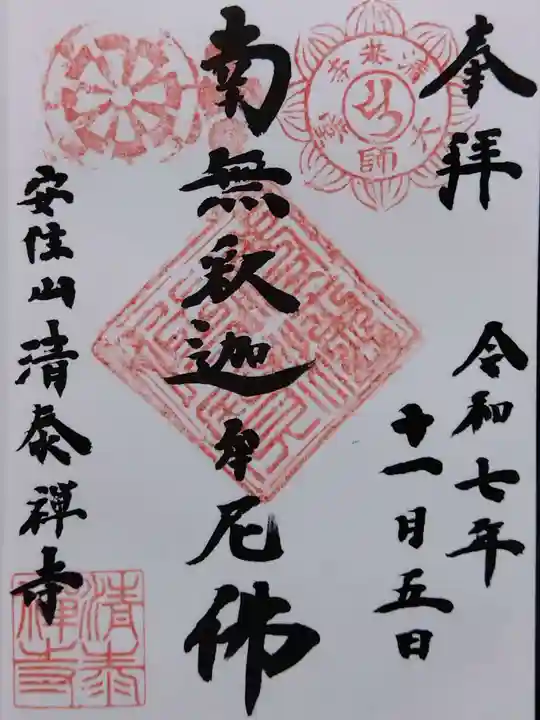 奉拝
令和七年
十一月五日
南無釈迦牟尼佛
安住山清泰禅寺
清泰
禅寺